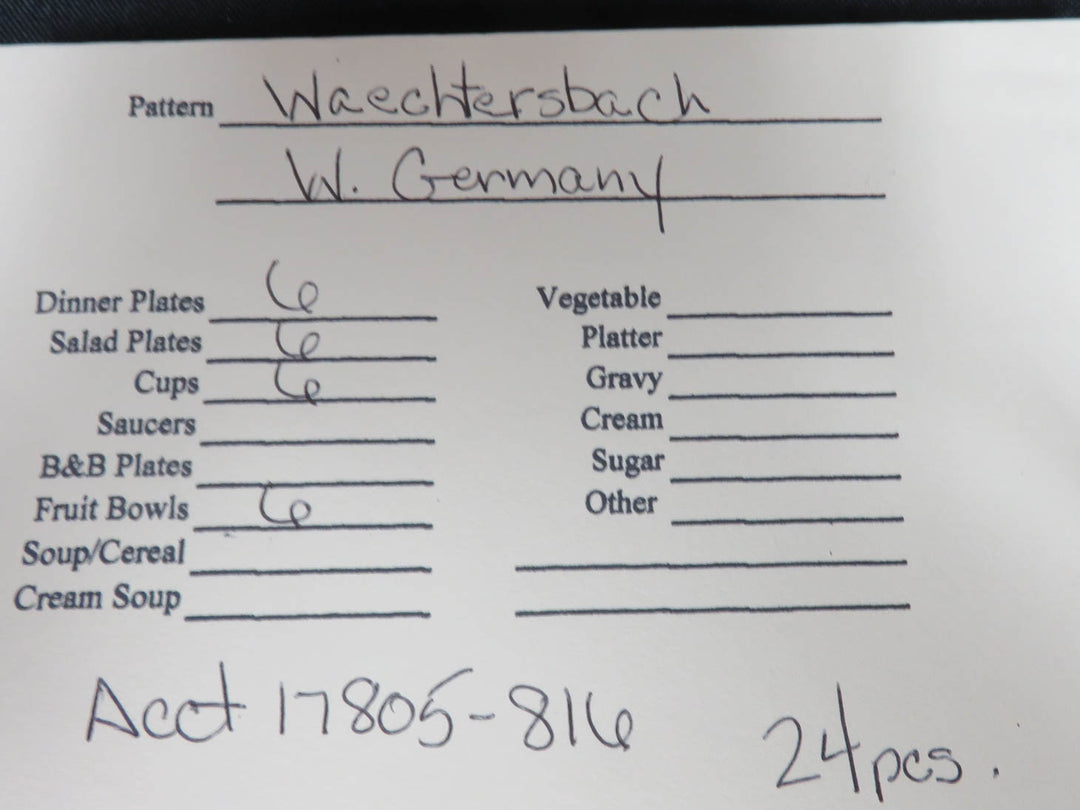 Pattern Waechtersbach
W. Germany
Dinner Plates 6
Salad Plates 6
Cups 6
Saucers
B&B Plates
Fruit Bowls 6
Soup/Cereal
Cream Soup
Vegetable
Platter
Gravy
Cream
Sugar
Other
Acct 17805-816
24 pcs.